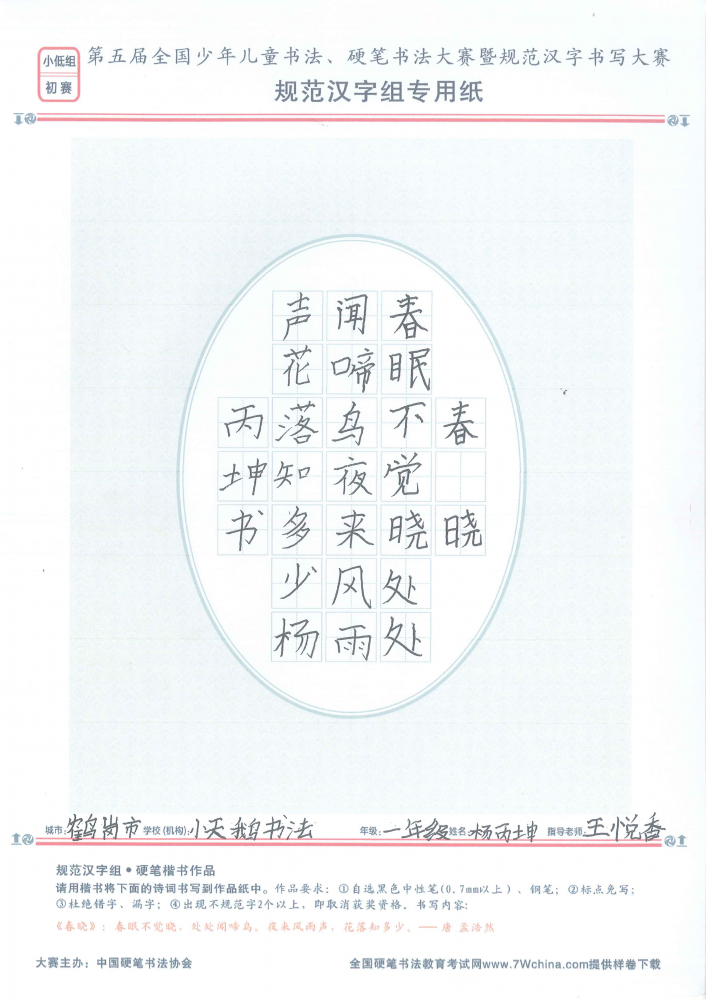 小低组
初赛
第五届全国少年儿童书法、硬笔书法大赛暨规范汉字书写大赛
规范汉字组专用纸
春晓
春眠不觉晓处处
闻啼鸟夜来风雨
声花落知多少杨
丙坤书
城市:鹤岗市 学校(机构):小天鹅书法 年级:一年级 姓名:杨丙坤 指导老师:王悦香
规范汉字组•硬笔楷书作品
请用楷书将下面的诗词书写到作品纸中。作品要求：①自选黑色中性笔(0.7mm以上）、钢笔；②标点免写；
③杜绝错字、漏字；④出现不规范字2个以上，即取消获奖资格。书写内容：
《春晓》：春眠不觉晓，处处闻啼鸟。夜来风雨声，花落知多少。——唐 孟浩然
大赛主办：中国硬笔书法协会
全国硬笔书法教育考试网www.7Wchina.com提供样卷下载